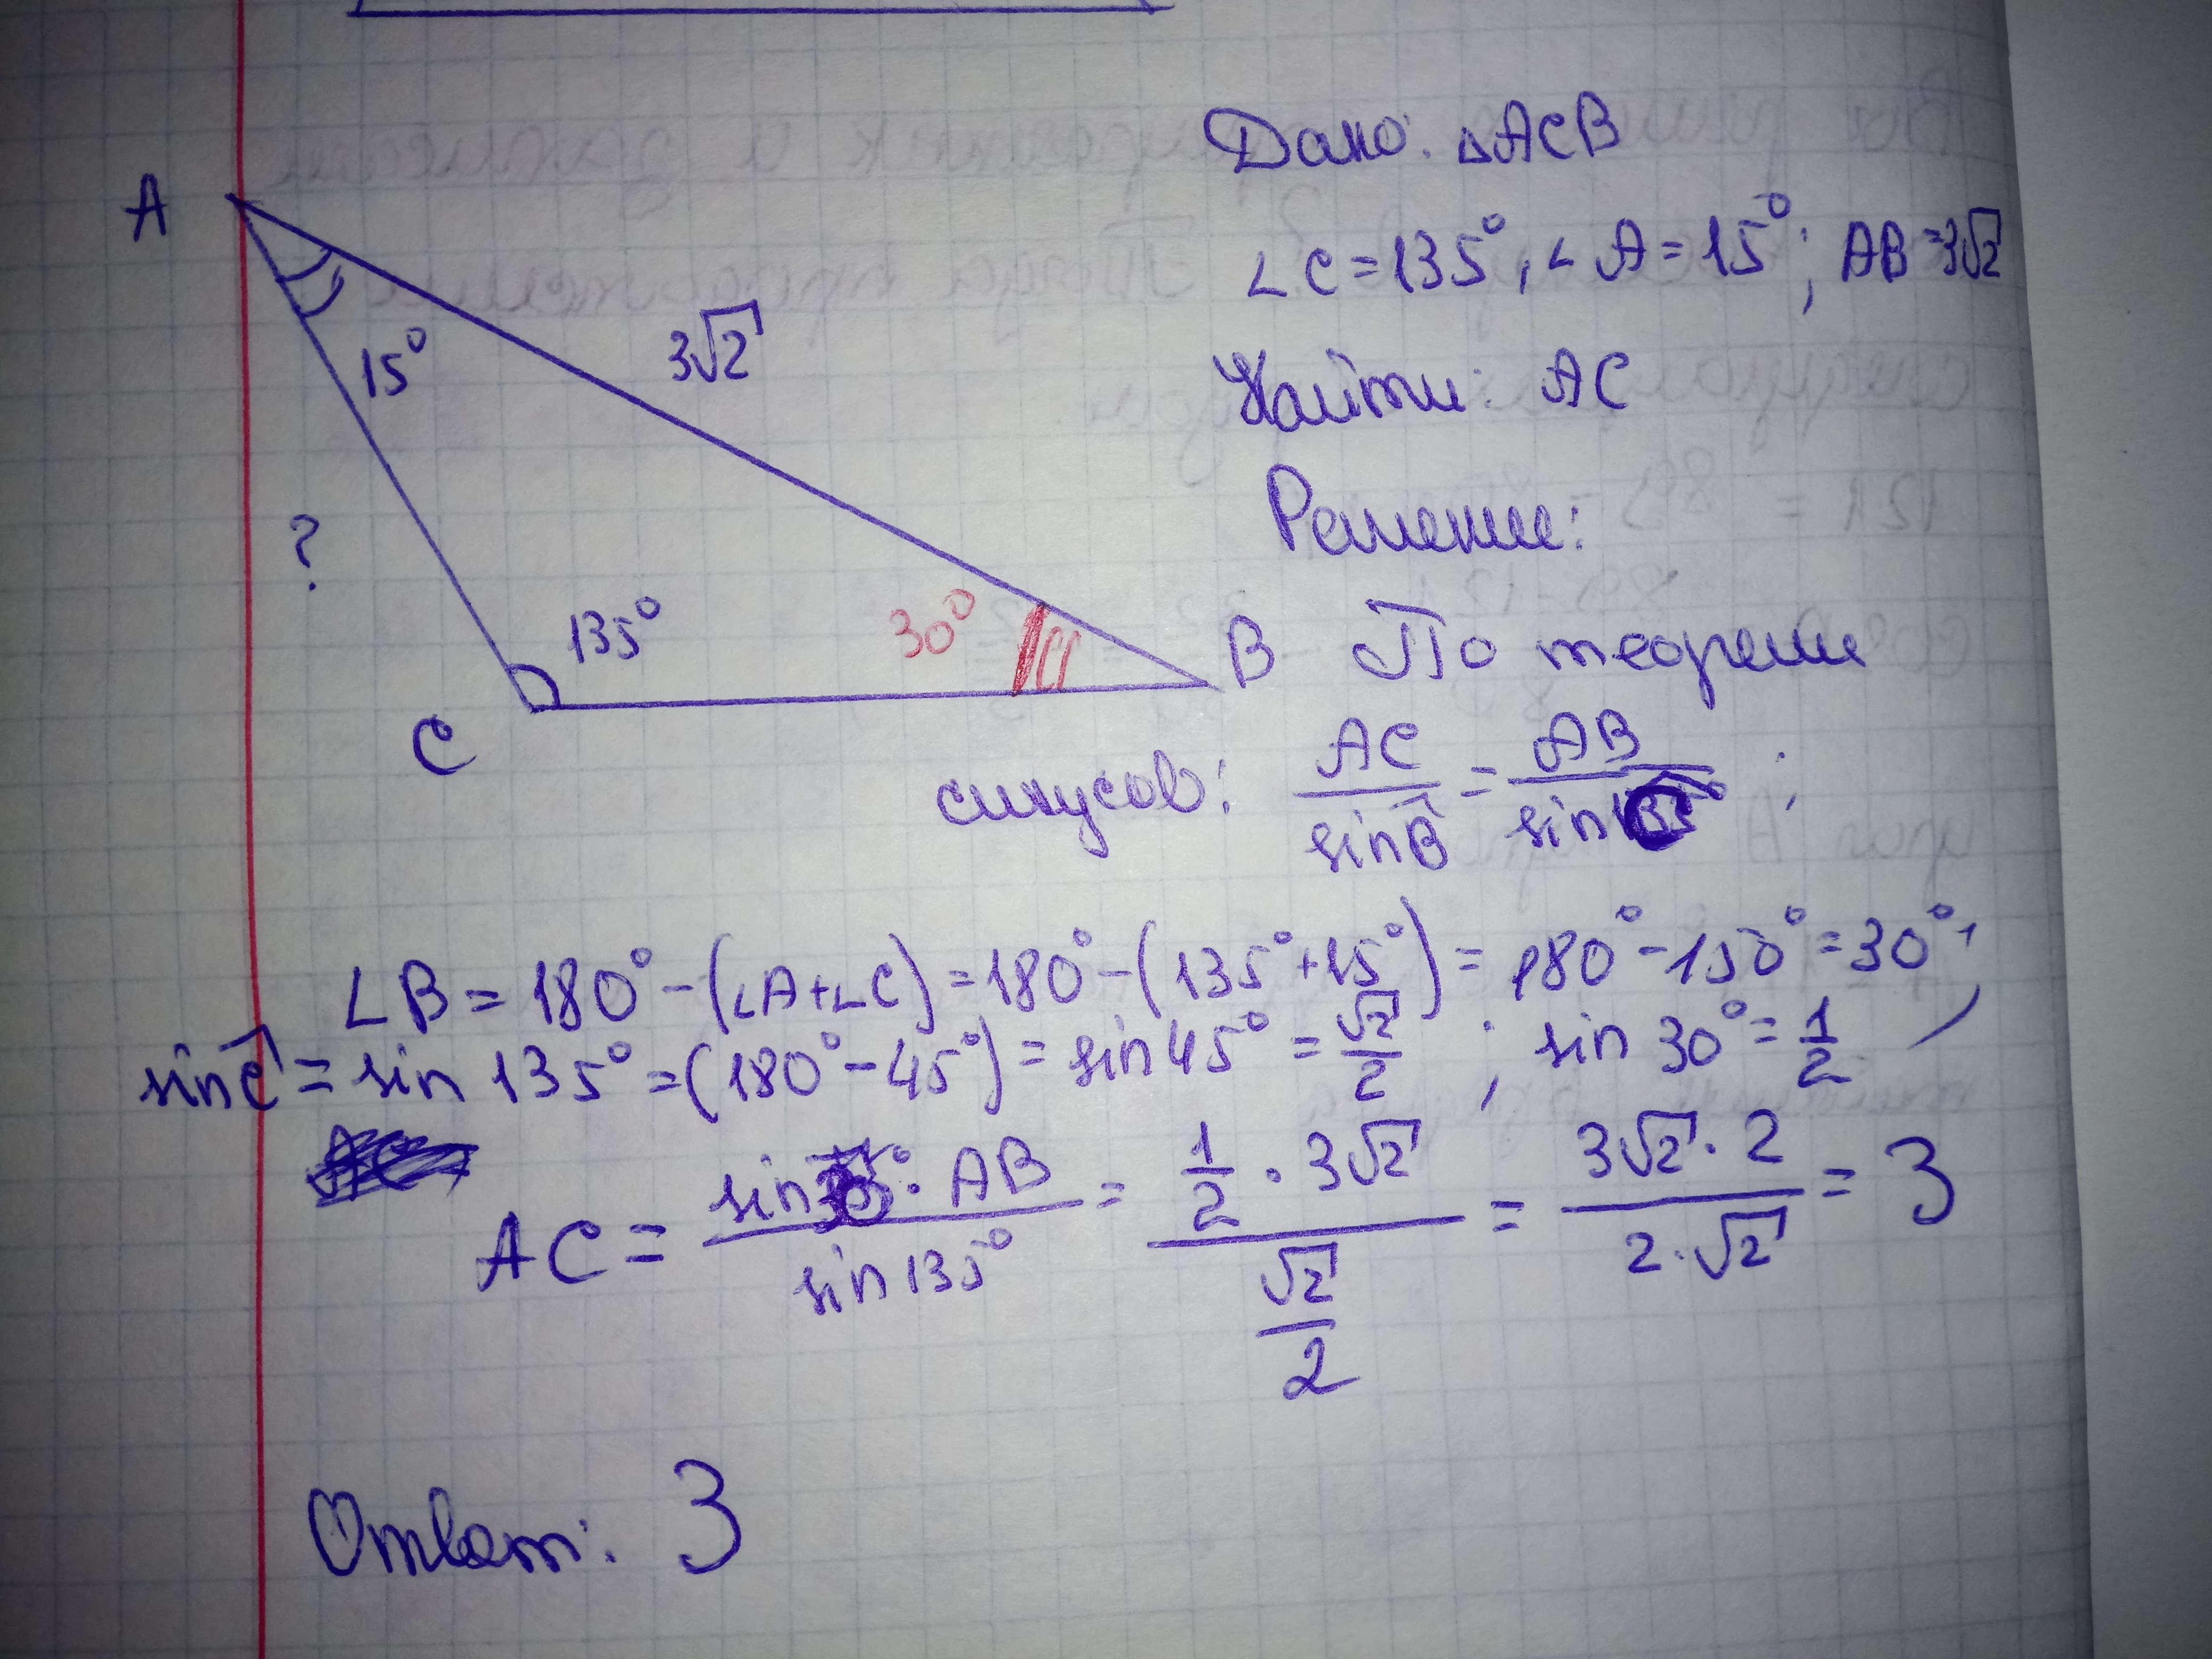 A
15°
3√2
?
135°
30°
B
C
Дано: △ACB
∠C=135°, ∠A=15°; AB=3√2
Найти: AC
Решение:
По теореме
синусов: AC/sinB = AB/sin ;
∠B = 180° - (∠A+∠C) = 180° - (135°+15°) = 180° - 150° = 30°;
sinC = sin 135° = (180° - 45°) = sin 45° = √2/2 ; sin 30° = 1/2
AC = sin · AB / sin 135° = 1/2 · 3√2 / √2/2 = 3√2 · 2 / 2 · √2 = 3
Ответ: 3